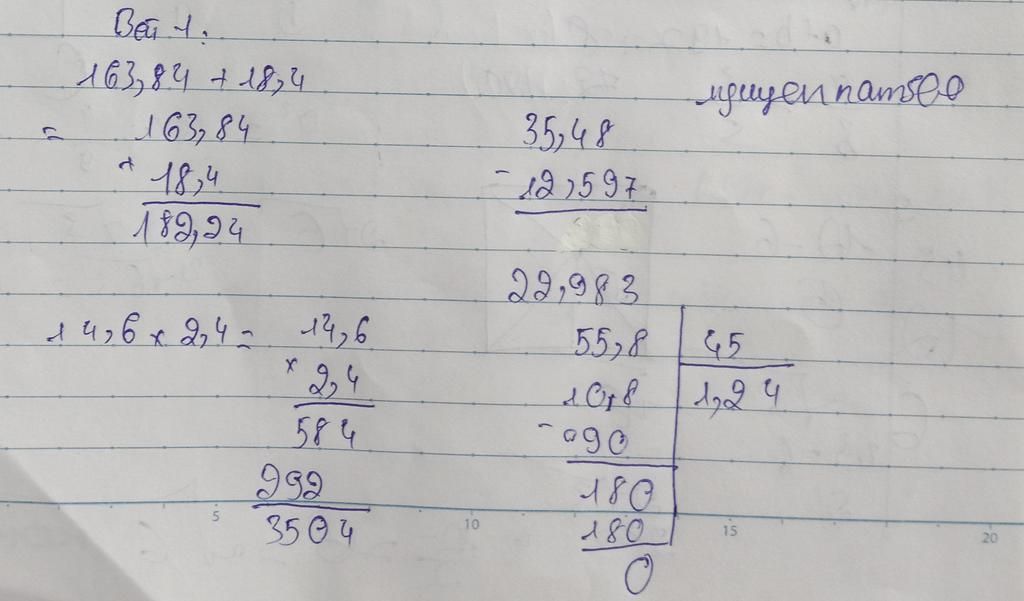 163,84 + 18,4
= 163,84
+ 18,4
182,24
35,48
- 12,597
22,983
14,6 x 2,4 = 14,6
x 2,4
584
292
3504
55,8 45
10,8 1,24
- 090
180
180
0
5 10 15 20